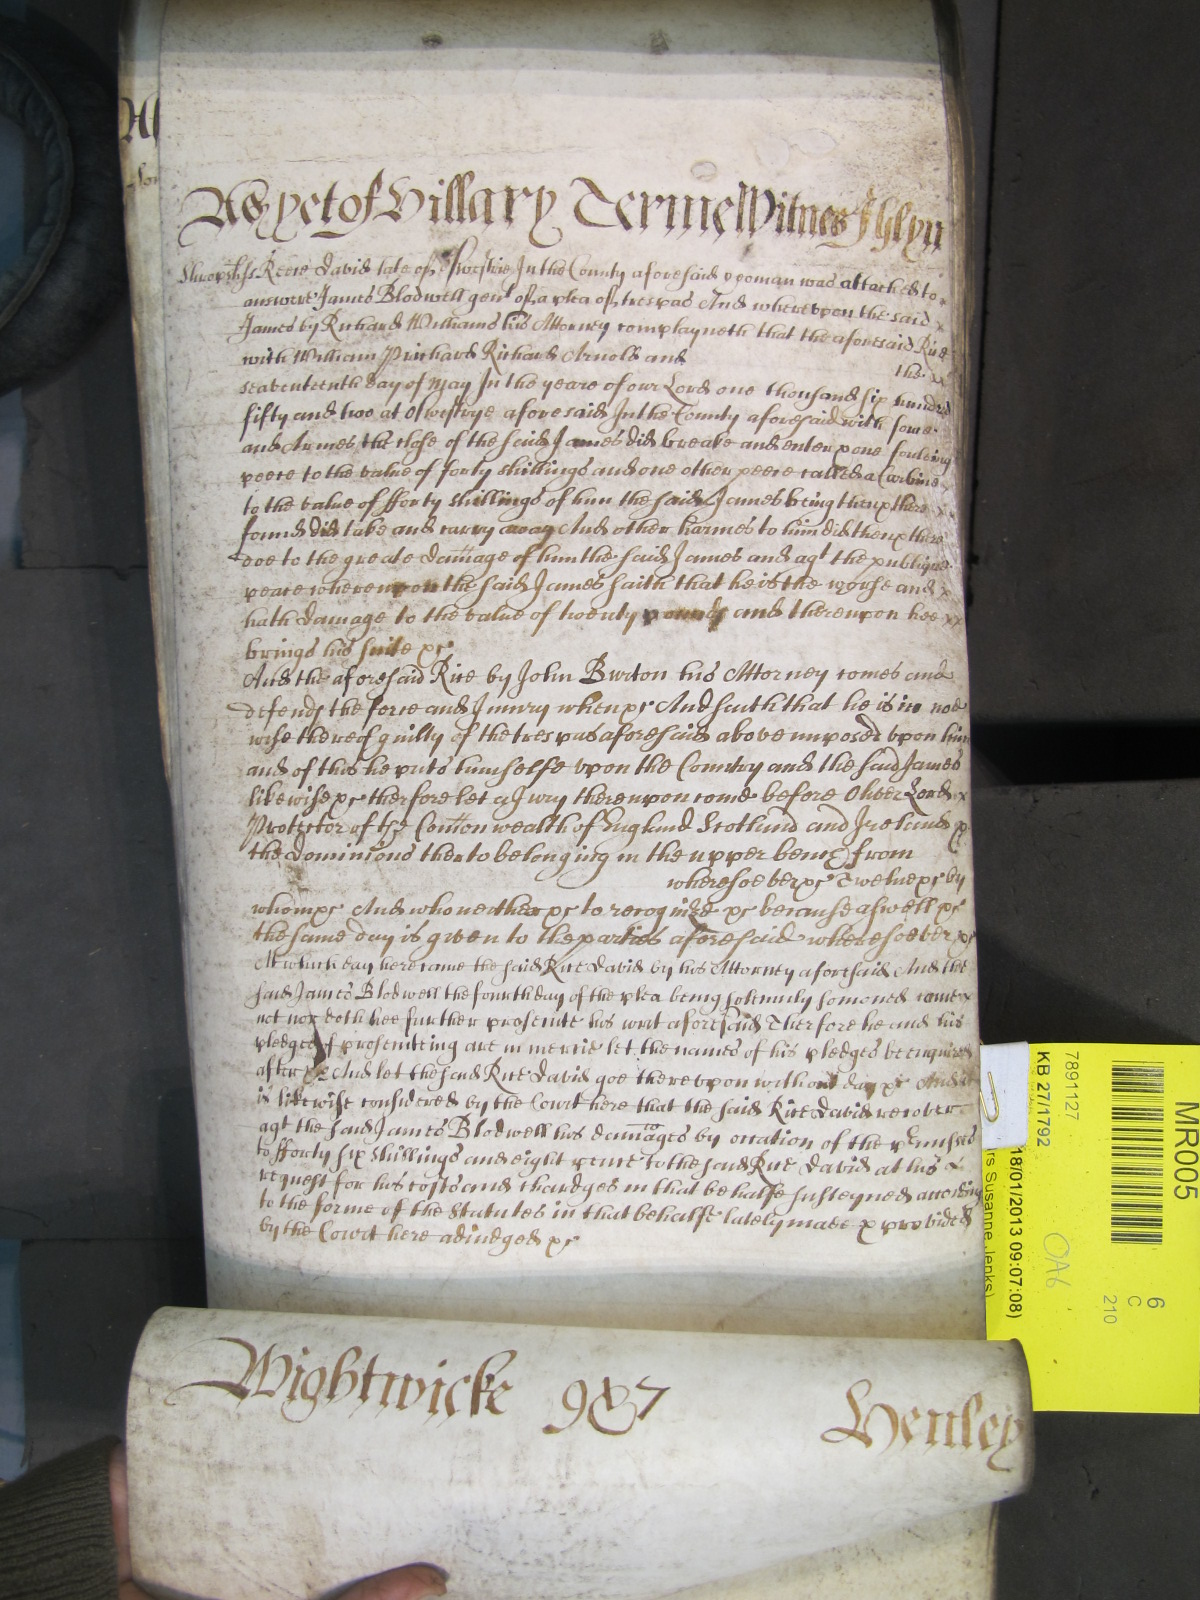 As yet of Hillary Terme Witnes J Glyn
Shropsh ss Reere David late of Oswestrie In the County aforesaid yeoman was attached to
answere James Blodwell gent of a plea of trespas And wherevpon the said x
James by Richard Williams his Attorney complayneth that the aforesaid Rice
with William Prichard Richard Arnold and the xx
seaventeenth day of May In the yeare of our Lord one thousand six hundred
fifty and two at Oswestrye aforesaid In the County aforesaid with force
and Armes the close of the said James did breake and enter & one fouleing
peece to the value of forty shillings and one other peece called a Carbine
to the value of fforty shillings of him the said James being then & there x x
found did take and carry away And other harmes to him did then & there
doe to the greate damage of him the said James and agt the publique
peace wherevpon the said James saith that he is the worse and x
hath damage to the value of twenty pounds and therevpon hee xx
brings his suite &c
And the aforesaid Rice by John Burton his Attorney comes and
defends the force and Iniury when &c And saith that he is in noe
wise thereof guilty of the trespas aforesaid above imposed vpon him
and of this he puts himselfe vpon the Country and the said James
likewise &c therfore let a Jury therevpon come before Oliver Lord x
Protector of the Comon wealth of England Scotland and Ireland &
the Dominions thereto belonging in the vpper bench from
wheresoever &c Twelve &c by
whom &c And who neither &c to recognize &c because aswell &c
the same day is given to the parties aforesaid wheresoever &c
At which day here came the said Rice David by his Attorney aforesaid And the
said James Blodwell the fourth day of the plea being solemnly somoned came x
not nor doth hee further prosecute his writ aforesaid Therfore he and his
pledges of prosecuting are in mercie let the names of his pledges be enquired
after &c And let the said Rice David goe therevpon without day &c And it
is likewise considered by the Court here that the said Rice David recover
agt the said James Blodwell his damages by occasion of the pmisses
to fforty six shillings and eight pence to the said Rice David at his x
request for his costs and chardges in that behalfe susteyned according
to the forme of the Statutes in that behalfe lately made & provided
by the Court here adiudged &c
Wightwicke 987 Henley
MR005
6
C
210
7891127
KB 27/1792
OA6
18/01/2013 09:07:08)
rs Susanne Jenks)